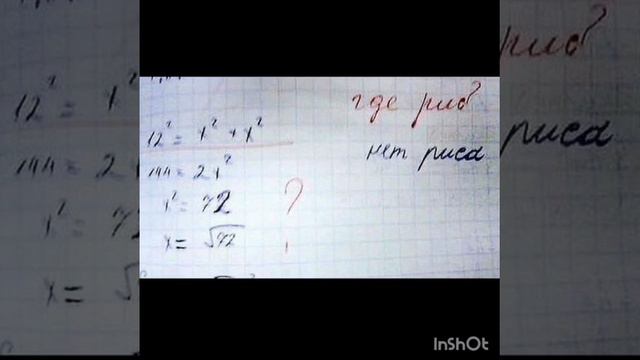 12² = x² + x²
144 = 2x²
x² = 72
x = √72
?
где рис
нет риса
InShOt